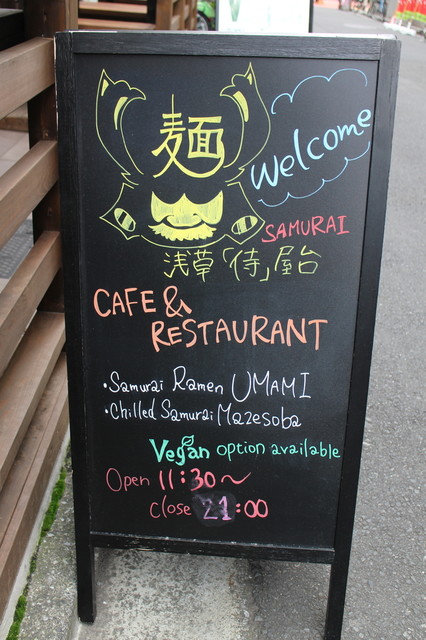 麺
Welcome
SAMURAI
浅草「侍」屋台
CAFE &
RESTAURANT
・Samurai Ramen UMAMI
・Chilled Samurai Mazesoba
Vegan option available
Open 11:30～
close 21:00